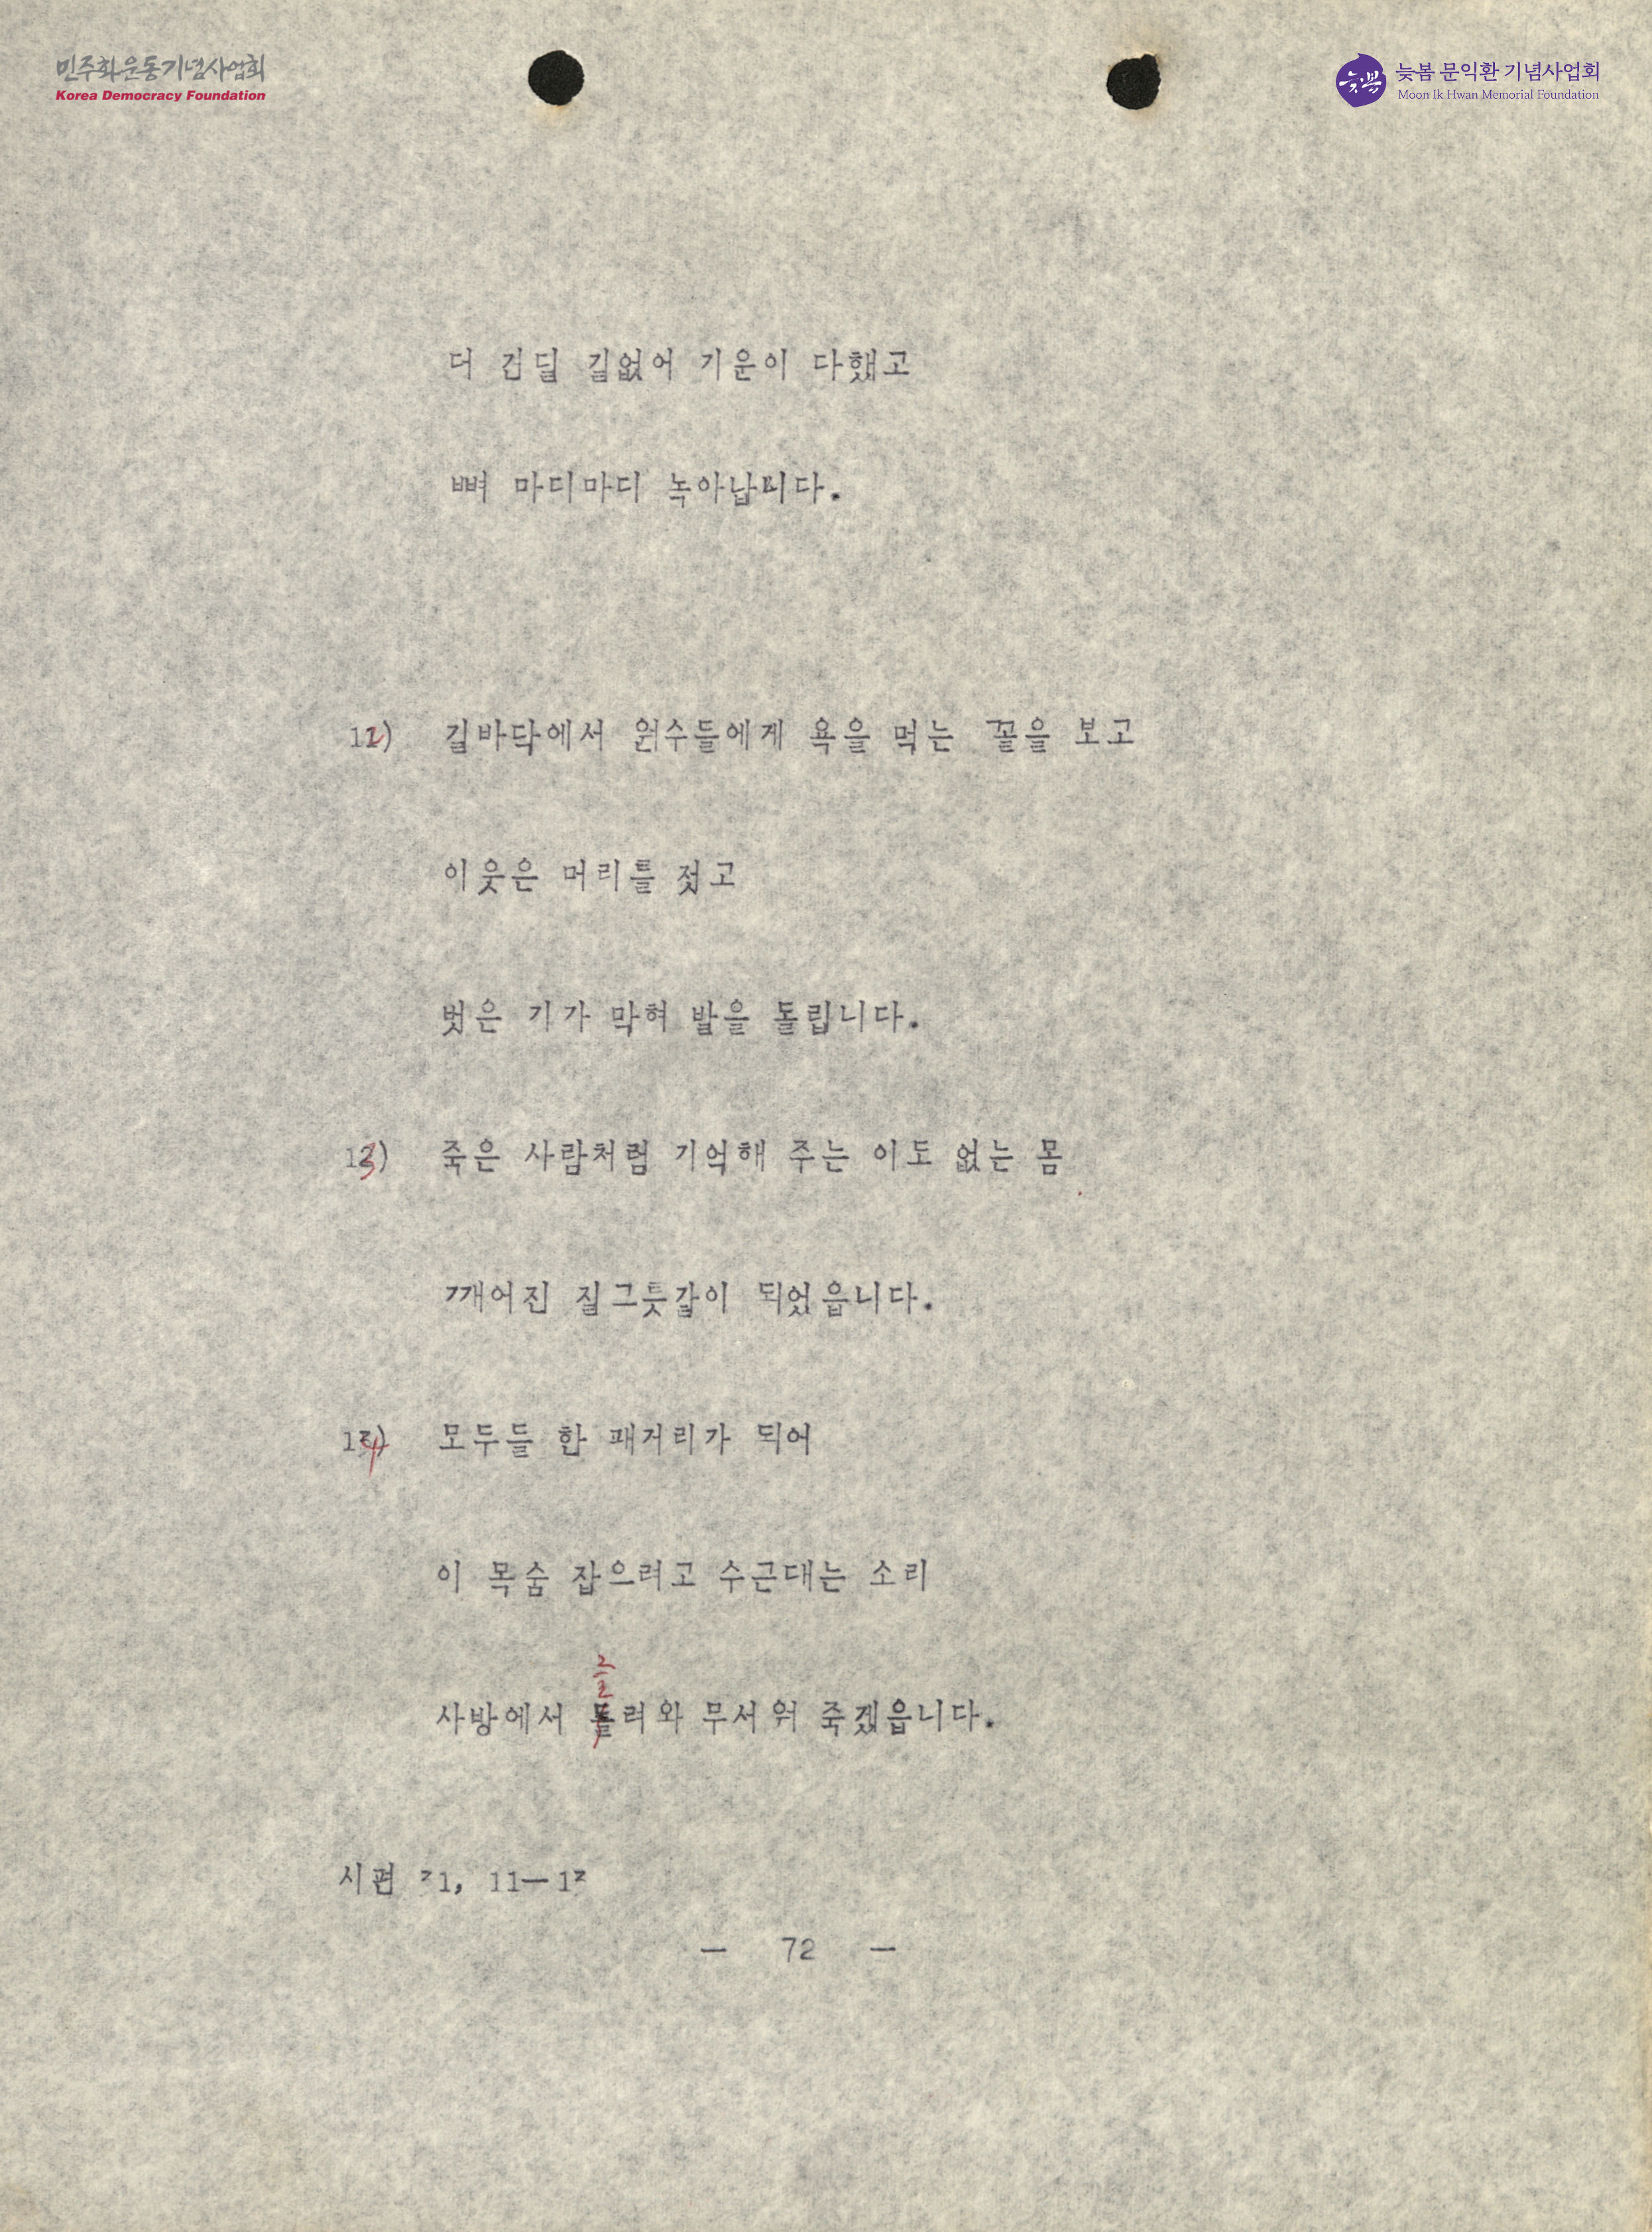 민주화운동기념사업회
Korea Democracy Foundation
늦봄
늦봄 문익환 기념사업회
Moon Ik Hwan Memorial Foundation
더 견딜 길없어 기운이 다했고
뼈 마디마디 녹아납니다.
12) 길바닥에서 원수들에게 욕을 먹는 꼴을 보고
이웃은 머리를 젓고
벗은 기가 막혀 발을 돌립니다.
13) 죽은 사람처럼 기억해 주는 이도 없는 몸
깨어진 질그릇같이 되었읍니다.
14) 모두들 한 패거리가 되어
이 목숨 잡으려고 수근대는 소리
사방에서 들려와 무서워 죽겠읍니다.
시편 31, 11—13
— 72 —